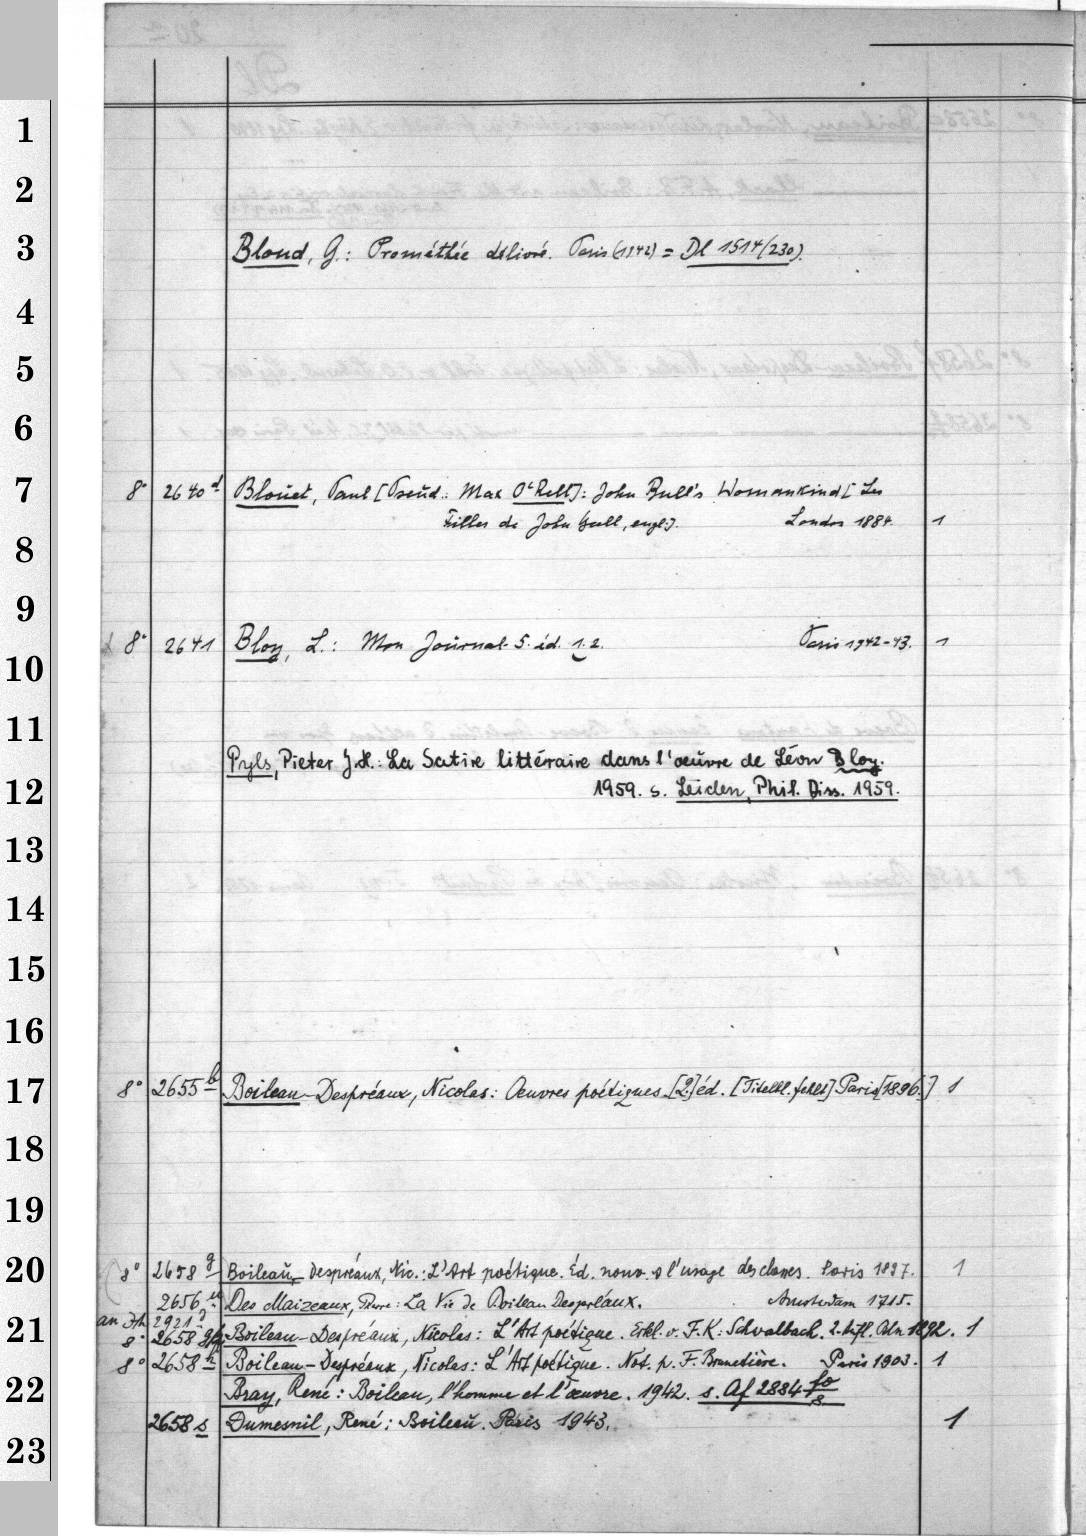 1
2
3 Blond, G.: Prométhée délivré. Paris (1942) = Dl 1514/(230).
4
5
6
7 8° 2640 d Blouët, Paul [Pseud.: Max O'Rell]: John Bull's Womankind [Les
Filles de John Bull, engl.]. London 1884. 1
8
9
8° 2641 Bloy, L.: Mon Journal. 5. éd. 1.2. Paris 1942-43. 1
10
11
Pyls, Pieter J.H.: La Satire littéraire dans l'œuvre de Léon Bloy.
12 1959. s. Leiden, Phil. Diss. 1959.
13
14
15
16
17 8° 2655 b Boileau-Despréaux, Nicolas: Œuvres poétiques [2.] éd. [Titelbl. fehlt] Paris [1896.] 1
18
19
20 8° 2658 g Boileau, Despréaux, Nic.: L'Art poétique. Éd. nouv. à l'usage des classes. Paris 1897. 1
2656 Des Maizeaux, Pierre: La Vie de Boileau Despréaux. Amsterdam 1715.
an 2921
21 8° 2658 Boileau-Despréaux, Nicolas: L'Art poétique. Erkl. v. F.K. Schwalbach. 2. Aufl. Bln 1892. 1
8° 2658 h Boileau-Despréaux, Nicolas: L'Art poétique. Not. p. F. Brunetière. Paris 1903. 1
22 Bray, René: Boileau, l'homme et l'œuvre. 1942. s. Af 2884
2658 s Dumesnil, René: Boileau. Paris 1943. 1
23